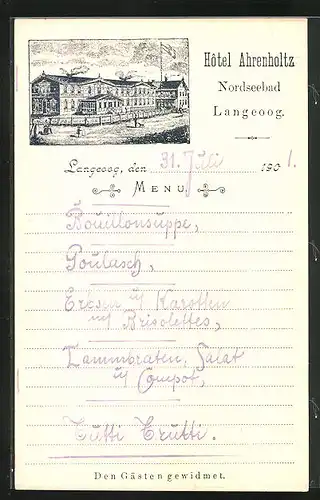 Hôtel Ahrenholtz
Nordseebad
Langeoog.
Langeoog, den 31. Juli 1901.
MENU.
Bouillonsuppe,
Goulasch,
Erbsen u Karotten
mit Brisolettes,
Lammbraten, Salat
u Compot,
Tutti Frutti.
Den Gästen gewidmet.